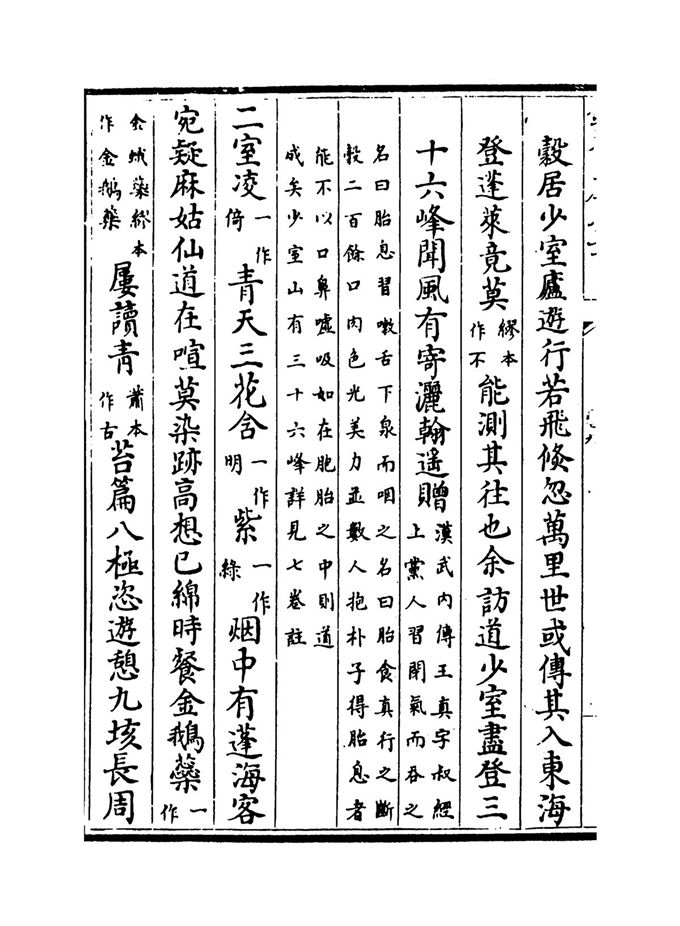 穀居少室廬遊行若飛倐忽萬里世或傳其入東海
登蓬萊竟莫繆本作不能測其往也余訪道少室盡登三
十六峰聞風有寄灑翰遥贈漢武内傳王真字叔經上黨人習閉氣而吞之
名曰胎息習嗽舌下泉而咽之名曰胎食真行之斷
穀二百餘口肉色光美力並數人抱朴子得胎息者
能不以口鼻噓吸如在胞胎之中則道
成矣少室山有三十六峰詳見七卷註
二室凌一作倚青天三花含一作明紫一作綠烟中有蓬海客
宛疑麻姑仙道在喧莫染跡高想已綿時餐金鵝蘂一作
金蛾蘂繆本作金鵝藥屢讀青蕭本作古苔篇八極恣遊憩九垓長周